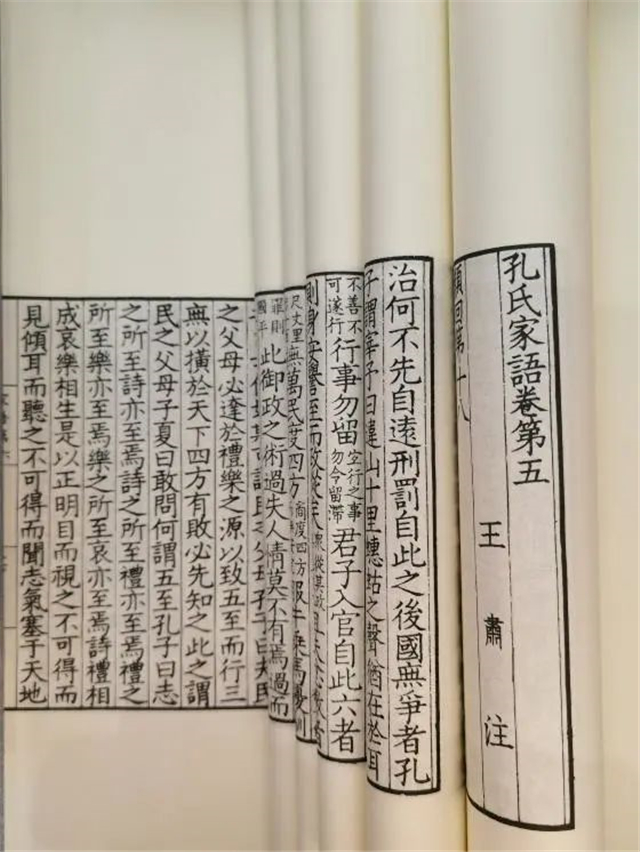 孔氏家語卷第五
王肅注
顏回第十八
治何不先自遠刑罰自此之後國無爭者孔
子謂宰予曰違山十里蟪蛄之聲猶在於耳
不善不可遂行行事勿留空行之事勿令留滯君子入官自此六者
則身安譽至而政從矣
尺丈里無萬民度四方
此御政之術過失人情莫不有焉過而
之父母必達於禮樂之源以致五至而行三
無以橫於天下四方有敗必先知之此之謂
民之父母子夏曰敢問何謂五至孔子曰志
之所至詩亦至焉詩之所至禮亦至焉禮之
所至樂亦至焉樂之所至哀亦至焉詩禮相
成哀樂相生是以正明目而視之不可得而
見傾耳而聽之不可得而聞志氣塞于天地